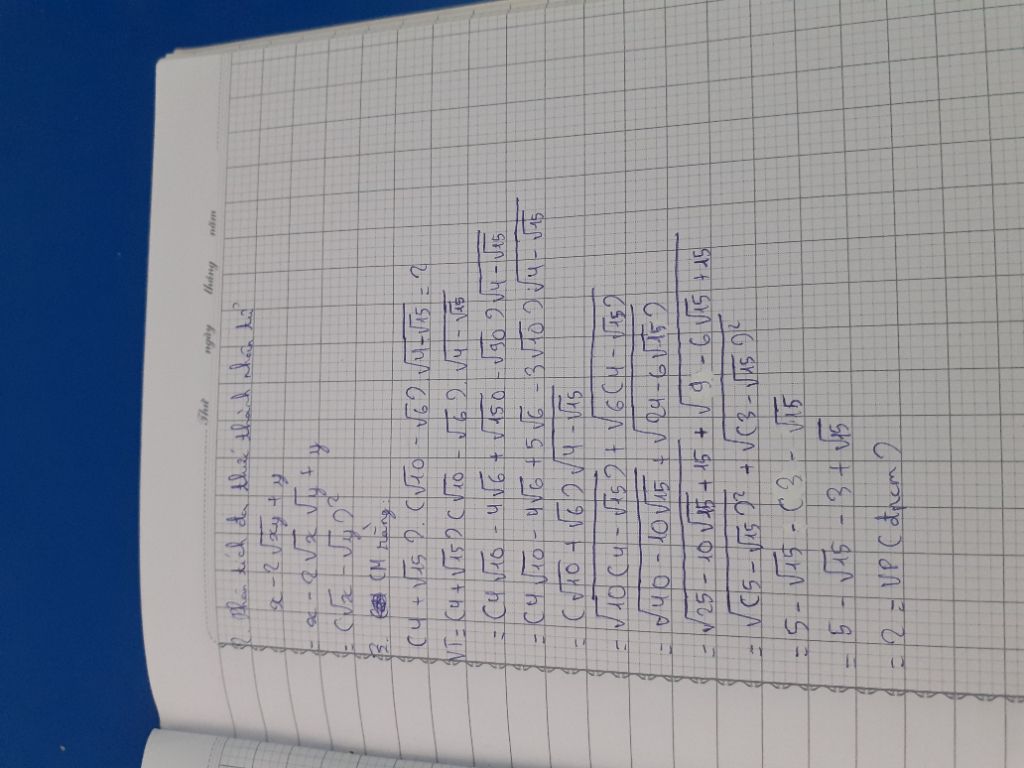 Thứ ngày tháng năm
2. Phân tích đa thức thành nhân tử
x - 2√xy + y
= x - 2√x √y + y
= (√x - √y)²
B2: CM rằng:
(4 + √15). (√10 - √6). √4-√15 = 2
VT = (4 + √15) (√10 - √6). √4 - √15
= (4√10 - 4√6 + √150 - √90) √4-√15
= (4√10 - 4√6 + 5√6 - 3√10) √4 - √15
= (√10 + √6) √4 - √15
= √10(4 - √15) + √6(4 - √15)
= √40 - 10√15 + √24 - 6√15)
= √25 - 10√15 + 15 + √9 - 6√15 + 15
= √(5 - √15)² + √(3 - √15)²
= 5 - √15 - (3 - √15
= 5 - √15 - 3 + √15
= 2 = VP (đpcm)